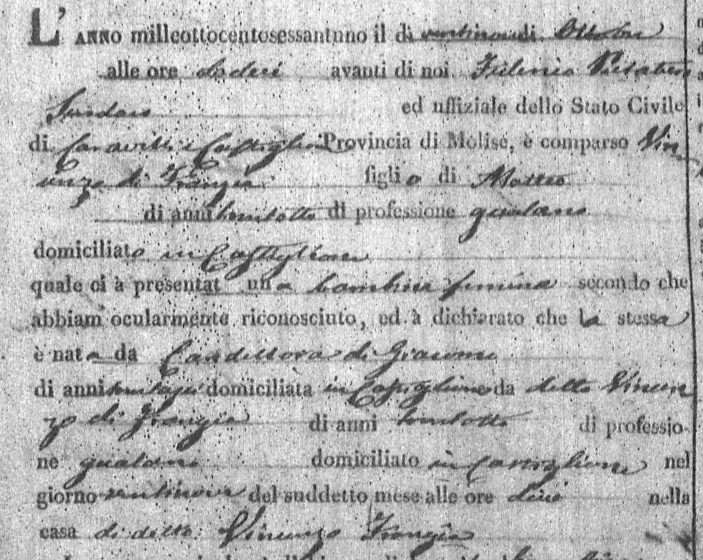 L'ANNO milleottocentosessantuno il dì ventinove di Ottobre
alle ore dodeci avanti di noi
Sindaco ed uffiziale dello Stato Civile
di Carovilli e Castiglione Provincia di Molise, è comparso Vin
cenzo di Frangia figlio di Matteo
di anni trentotto di professione gualano
domiciliato in Castiglione
quale ci à presentat una bambina femina secondo che
abbiam ocularmente riconosciuto, ed à dichiarato che la stessa
è nata da Candellora di Giacomo
di anni domiciliata in Castiglione da detto Vincen
zo di Frangia di anni trentotto di professio-
ne gualano domiciliato in Castiglione nel
giorno ventinove del suddetto mese alle ore dieci nella
casa di detto Vincenzo Frangia